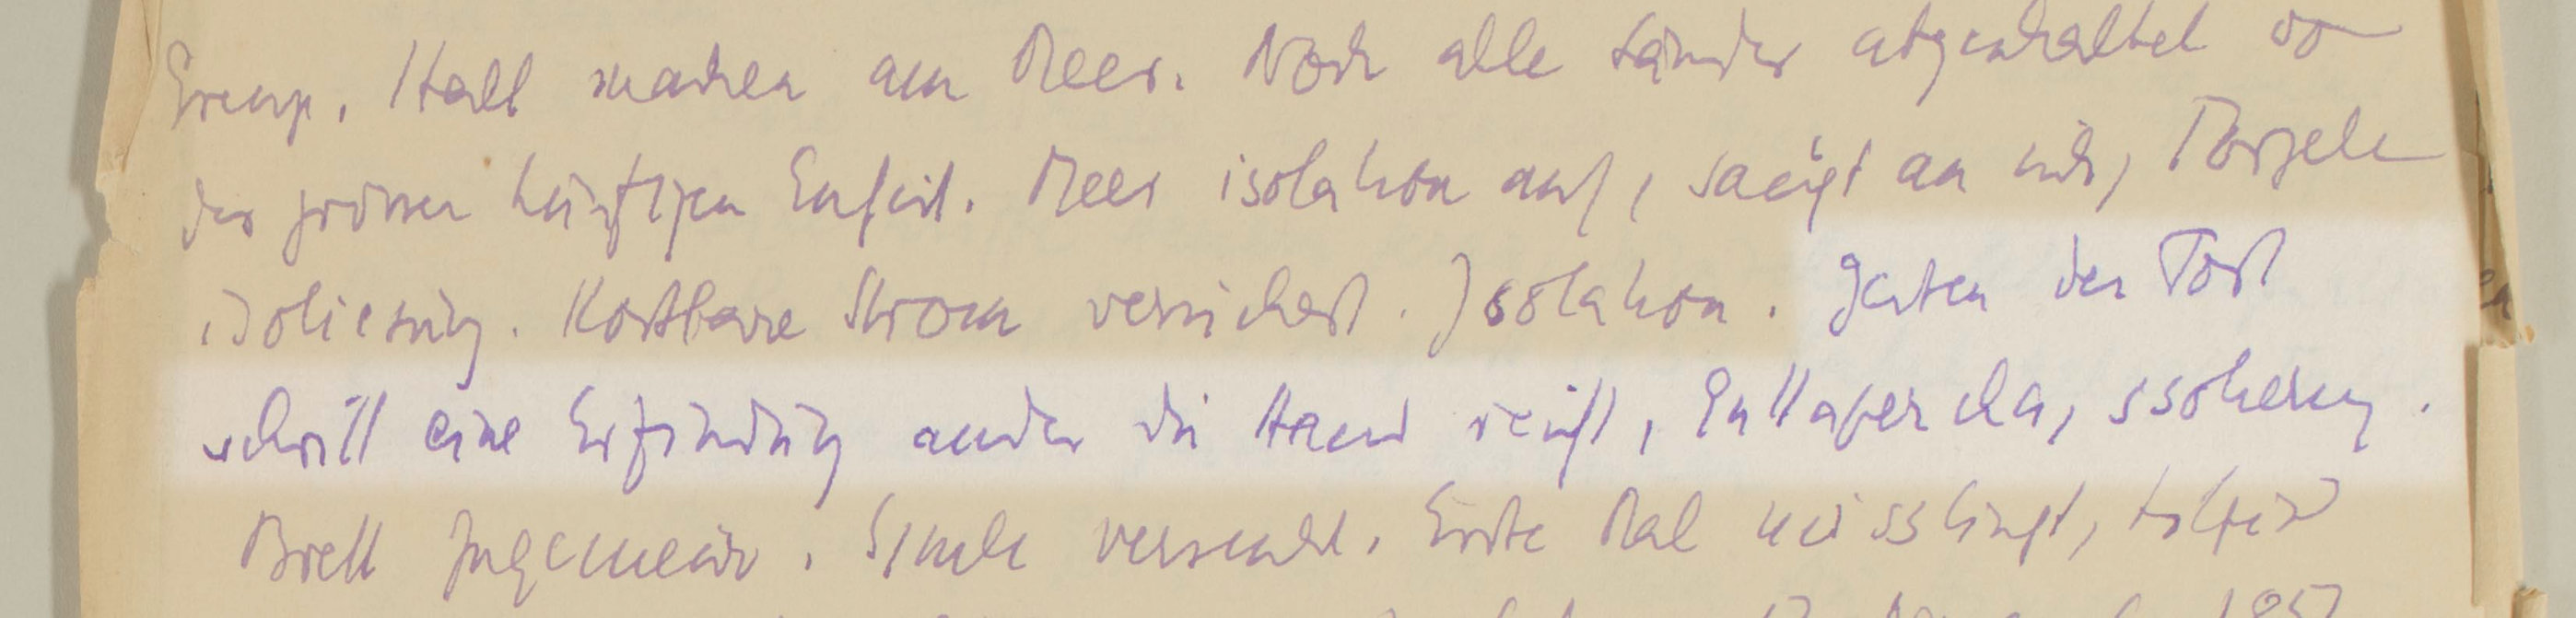 Europ. Halt machen am Meer. Noch alle Länder abgeschaltet vo
der grossen künftigen Einheit. Meer isolation auf, saugt an sich, Porzelan
isolierung. Kostbare Strom versickert. Isolation. der Fort
schritt eine Erfindung ander die Hand reicht, Guttapercha, isolierung.
Brett Ingenieur. versucht. Erste Mal misslingt,